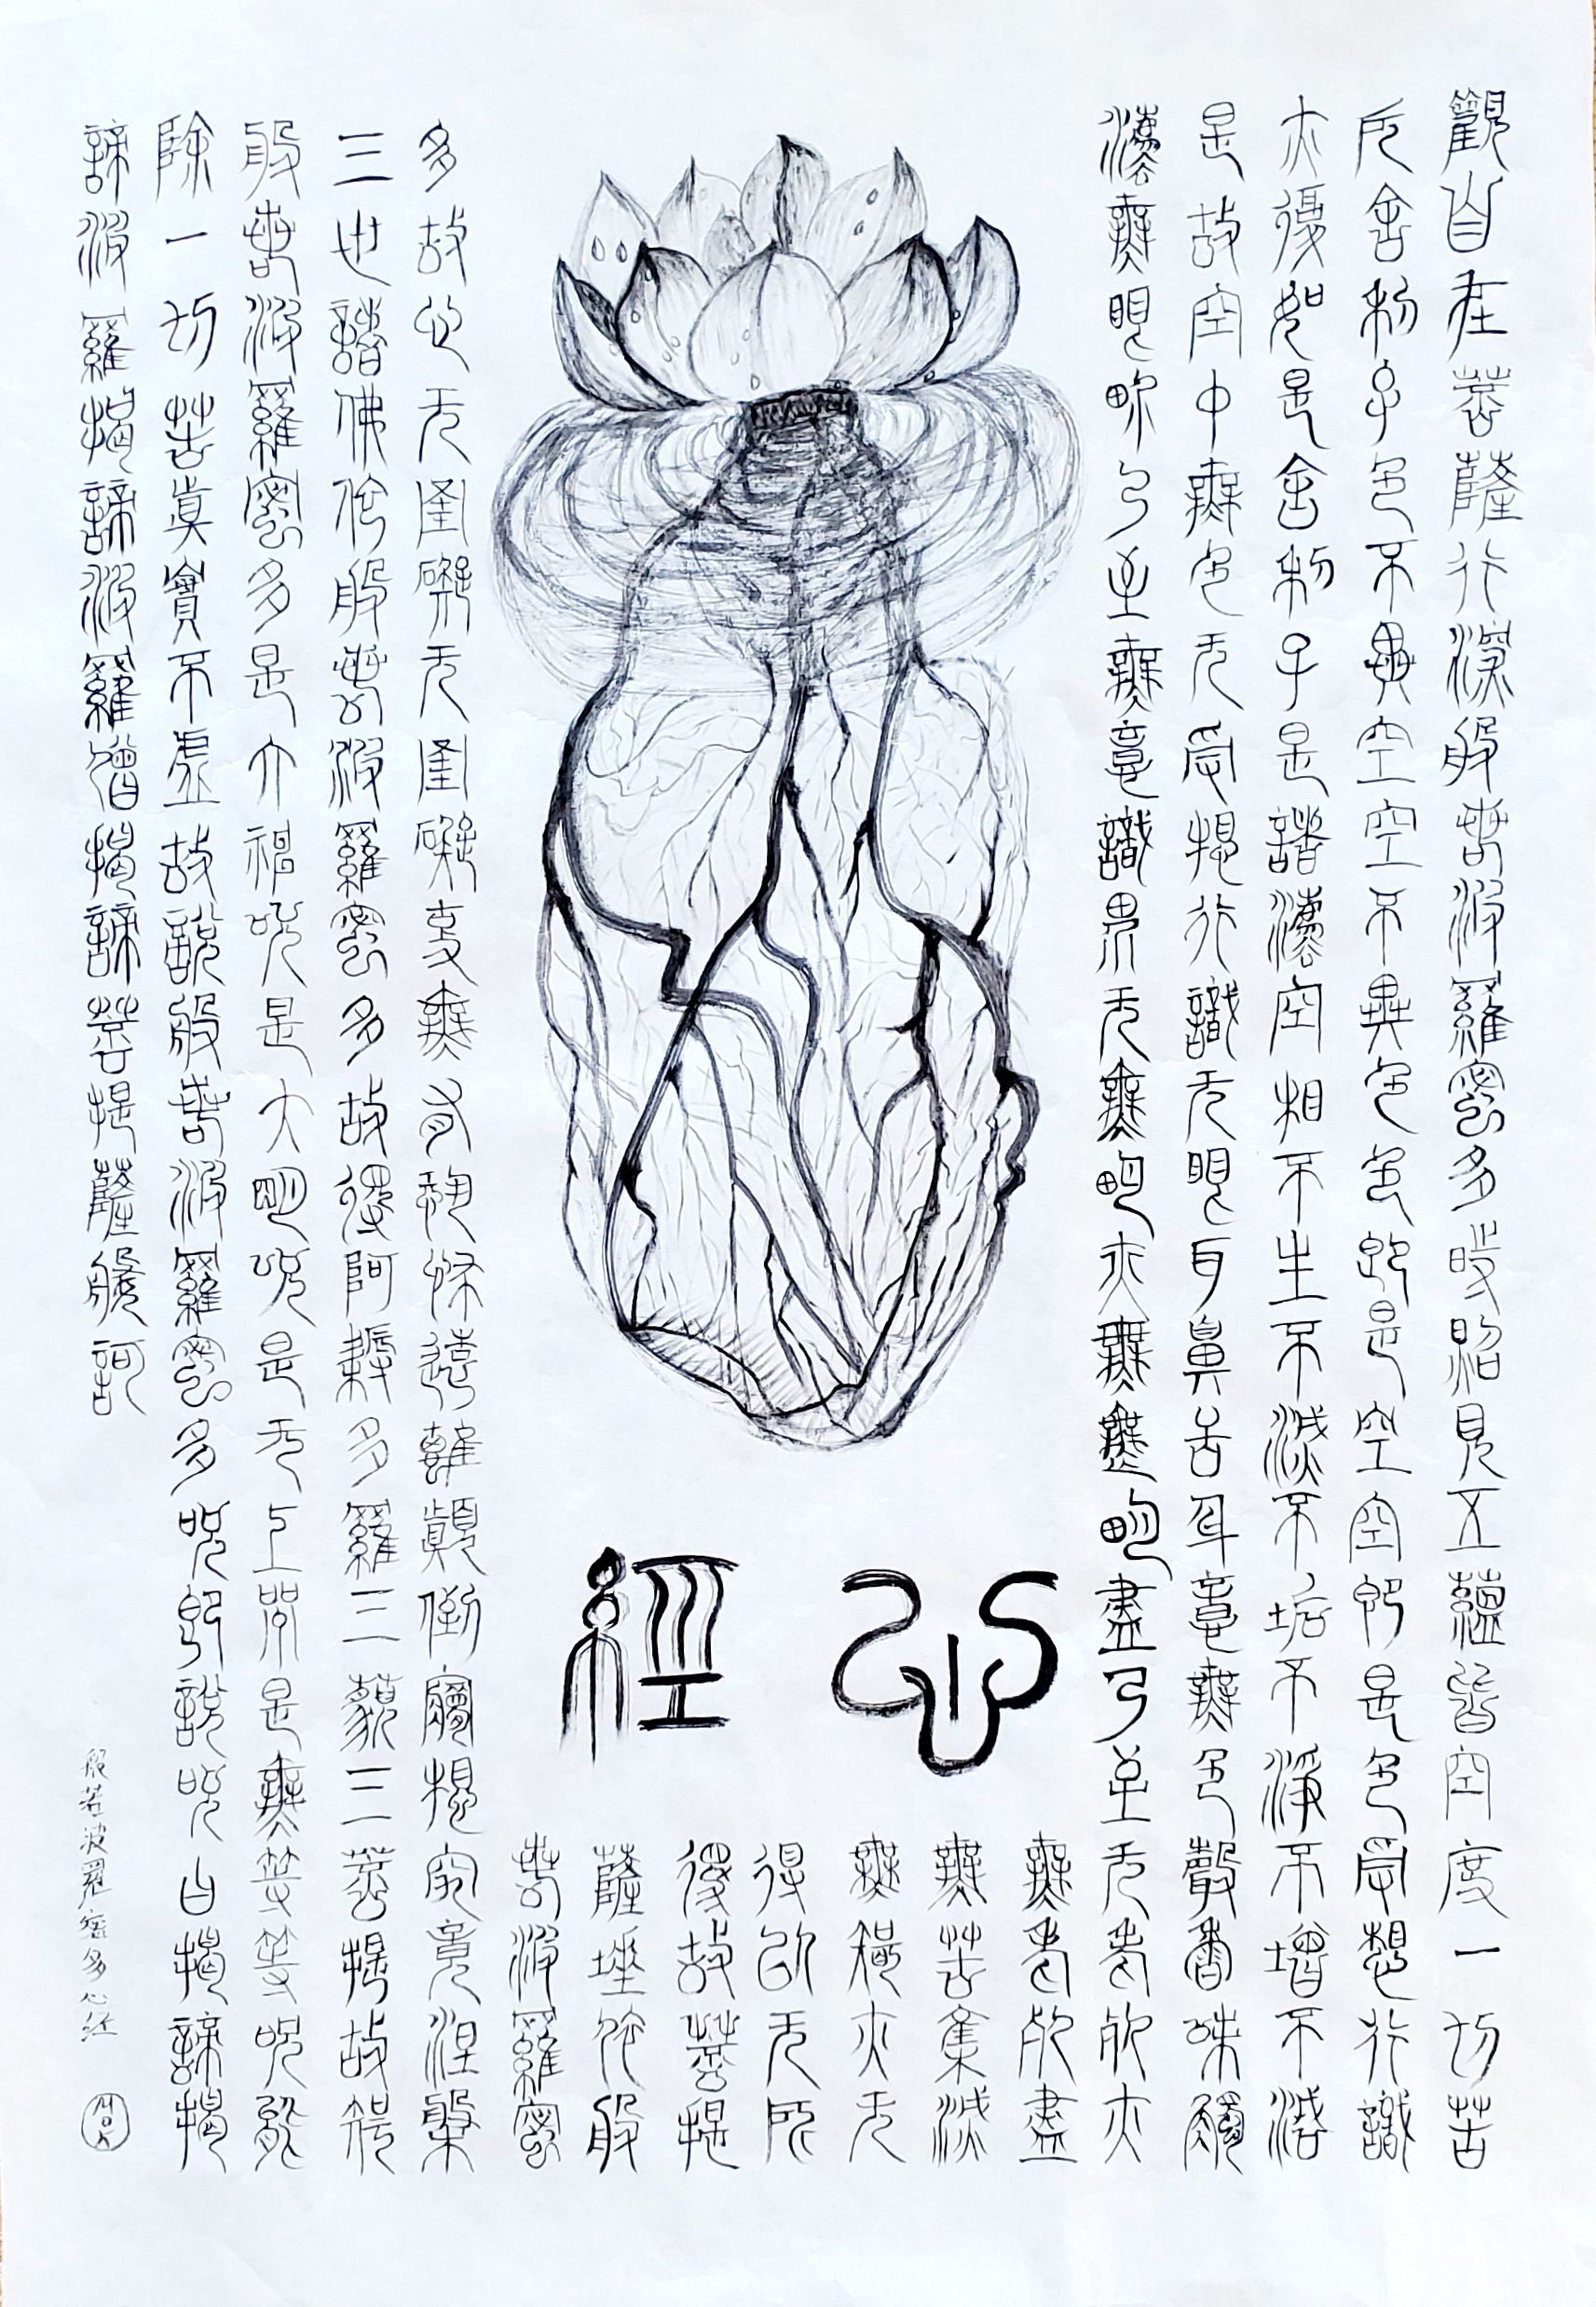 觀自在菩薩行深般若波羅蜜多時照見五蘊皆空度一切苦
厄舍利子色不異空空不異色色卽是空空卽是色受想行識
亦復如是舍利子是諸法空相不生不滅不垢不淨不增不減
是故空中無色无受想行識无眼耳鼻舌身意無色聲香味觸
法無眼界乃至無意識界无無明亦無無明盡乃至无老死亦
心經
無老死盡
無苦集滅
無智亦无
得以无所
得故菩提
薩埵依般
若波羅蜜
多故心无罣礙无罣礙故無有恐怖遠離顚倒夢想究竟涅槃
三世諸佛依般若波羅蜜多故得阿耨多羅三藐三菩提故知
般若波羅蜜多是大神呪是大明呪是无上呪是無等等呪能
除一切苦眞實不虛故說般若波羅蜜多呪卽說呪曰揭諦揭
諦波羅揭諦波羅僧揭諦菩提薩婆訶
般若波羅蜜多心经